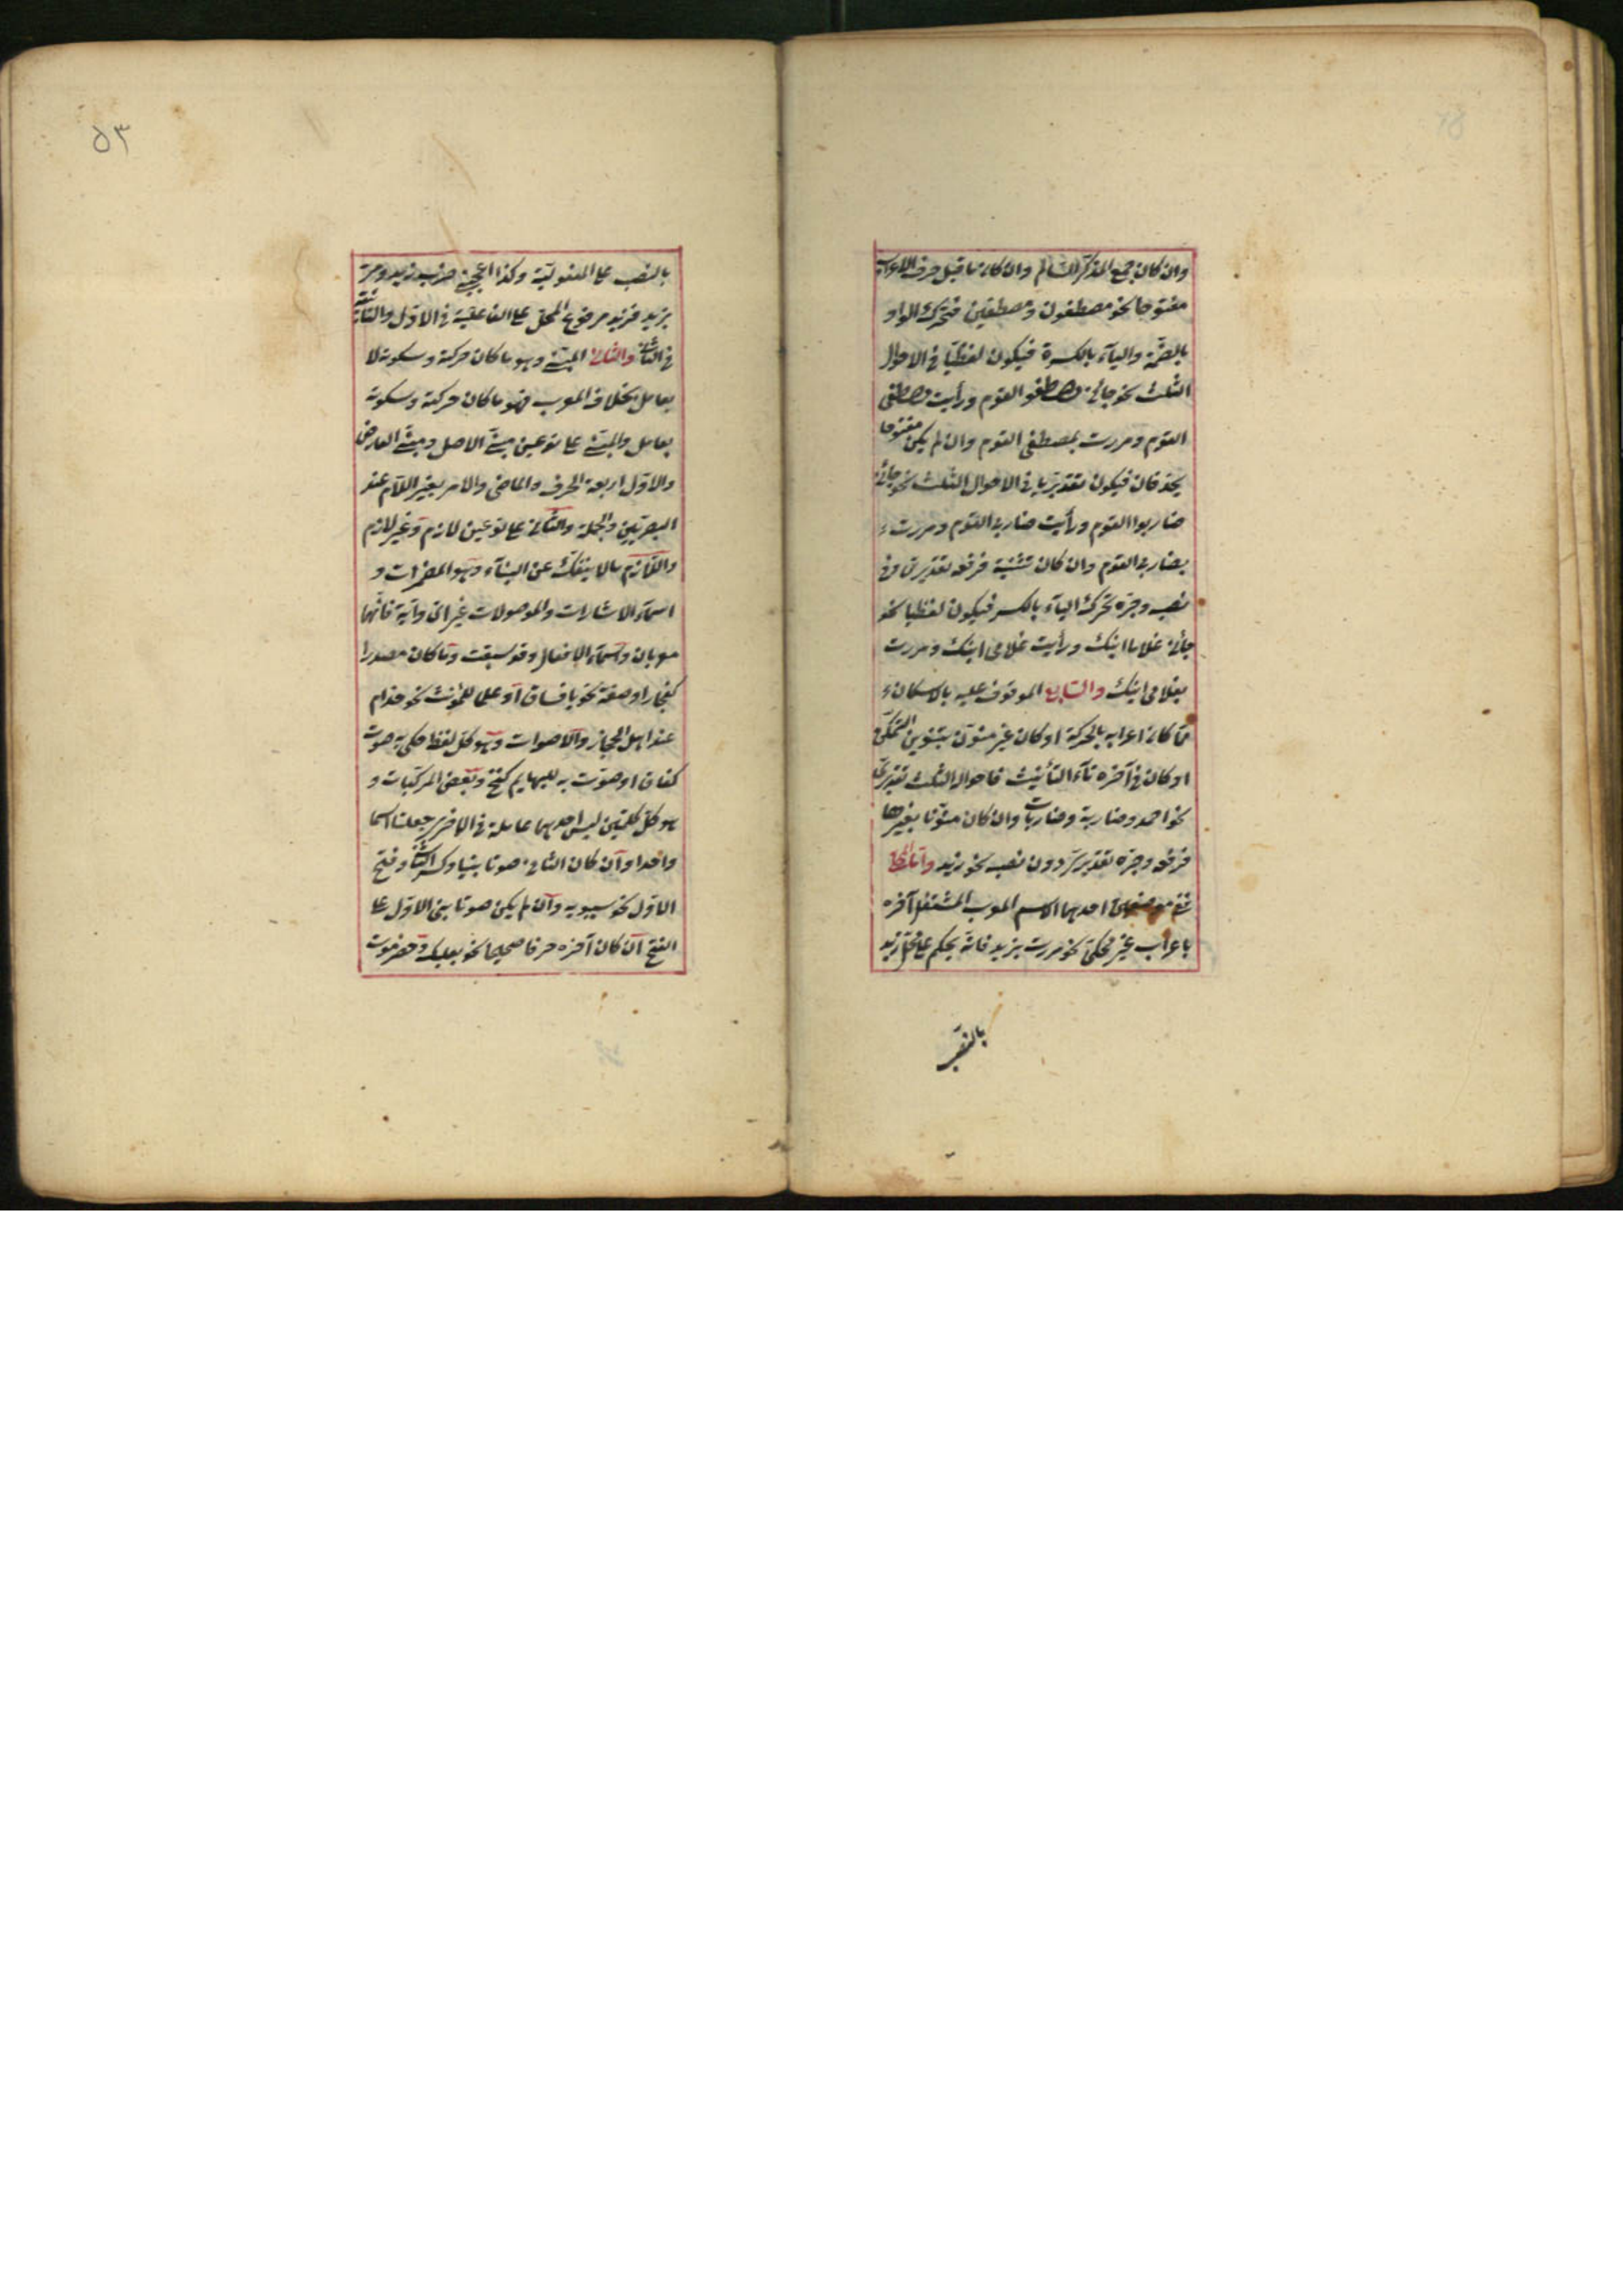 وان كان جمع المذكر السالم وان كان ما قبل حرف الاعراب
مفتوحا نحو مصطفون ومصطفين فتحرك الواو
بالضمة والياء بالكسرة فيكون لفظيا في الاحوال
الثلث نحو جائني مصطفو القوم ورأيت مصطفى
القوم ومررت بمصطفى القوم وان لم يكن مفتوحا
يحذفان فيكون تقديريا في الاحوال الثلث نحو جائني
ضاربوا القوم ورأيت ضاربى القوم ومررت
بضاربى القوم وان كان تثنية فرفعه تقديرى وفي
نصبه وجره تحرك الياء بالكسر فيكون لفظيا نحو
جائني غلاما ابنك ورأيت غلامى ابنك ومررت
بغلامى ابنك والسابع الموقوف عليه بالاسكان
مما كان اعرابه بالحركة او كان غير منون بتنوين التمكن
او كان في آخره تاء التأنيث فاحواله الثلث تقديرى
نحو احمد وضاربة وضاربات وان كان منونا بغيرها
فرفعه وجره تقديرى دون نصبه نحو زيد واما المحلى
ففي موضعين احدهما الاسم المعرب المشتغل آخره
باعراب غير محكى نحو مررت بزيد فانه يحكم على محل زيد
بالنصب
٥٣
بالنصب على المفعولية وكذا اعجبنى ضرب زيد ومر
بزيد فزيد مرفوع المحل على الفاعلية في الاول والنائبية
في الثانى والثانى المبنى وهو ما كان حركته وسكونه لا
بعامل بخلاف المعرب فهو ما كان حركته وسكونه
بعامل والمبنى على نوعين مبنى الاصل ومبنى العارض
والاول اربعة الحرف والماضى والامر بغير اللام عند
البصريين والجملة والثانى على نوعين لازم وغير لازم
واللازم ما لا ينفك عن البناء وهو المضمرات و
اسماء الاشارات والموصولات غير اى واية فانهما
معربان واسماء الافعال وقد سبقت وما كان مصدرا
كفجار او صفة نحو يا فساق او علما للمؤنث نحو حذام
عند اهل الحجاز والاصوات وهو كل لفظ حكى به صوت
كغاق او صوت به للبهايم كنخ وبعض المركبات و
هو كل كلمتين ليس احديهما عاملة في الاخرى جعلتا اسما
واحدا وان كان الثانى صوتا بنيا وكسر الثانى وفتح
الاول نحو سيبويه وان لم يكن صوتا بنى الاول على
الفتح ان كان آخره حرفا صحيحا نحو بعلبك وحضرموت